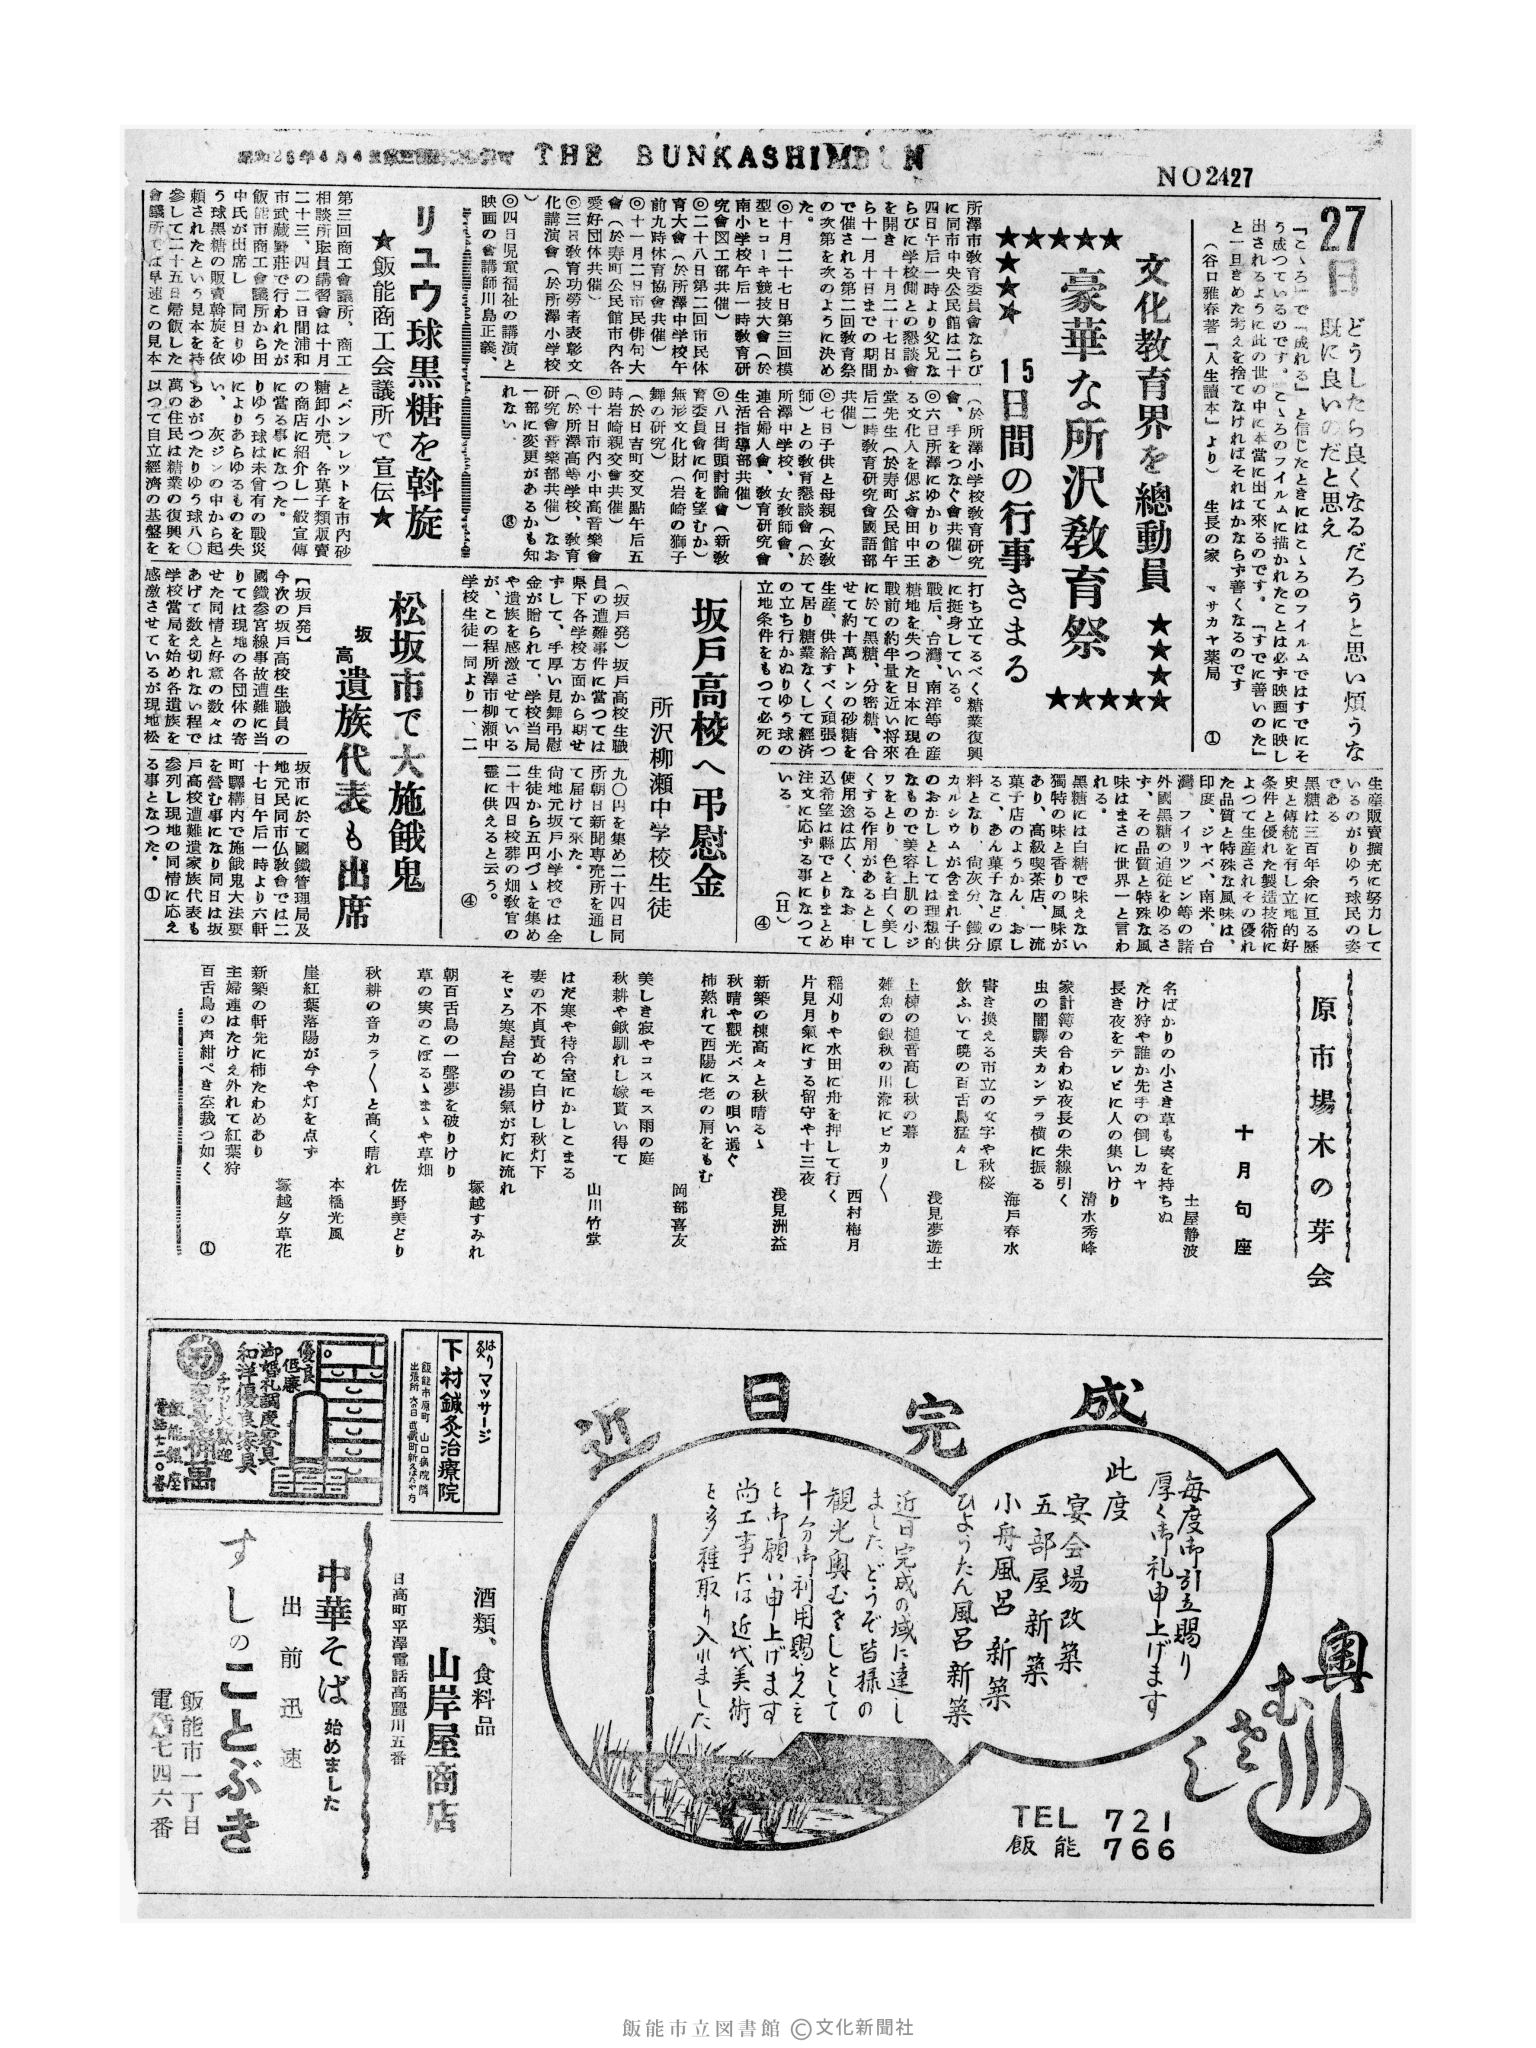 THE BUNKASHIMBUN
NO2427
27日
どうしたら良くなるだろうと思い煩うな
既に良いのだと思え
「こゝろ」で「成れる」と信じたときにはこゝろのフイルムではすでにそ
う成つているのです。こゝろのフイルムに描かれたことは必ず映画に映し
出されるように此の世の中に本當に出て來るのです。「すでに善いのだ」
と一旦きめた考えを捨てなければそれはかならず善くなるのです
(谷口雅春著「人生讀本」より) 生長の家 マサカヤ薬局 ①
文化教育界を總動員 ★★★★
★★★★★
豪華な所沢敎育祭
★★★★★
★★★★
15日間の行事きまる
所澤市敎育委員會ならび
に同市中央公民館は二十
四日午后一時より父兄な
らびに学校側との懇談會
を開き、十月二十七日か
ら十一月十日までの期間
で催される第二回敎育祭
の次第を次のように決め
た。
◎十月二十七日第三回模
型ヒコーキ競技大會(於
南小学校午后一時敎育研
究會図工部共催)
◎二十八日第二回市民休
育大會(於所澤中学校午
前九時休育協會共催)
◎十一月二日市民俳句大
會(於寿町公民館市内各
愛好団体共催)
◎三日敎育功労者表彰文
化講演會(於所澤小学校
)
◎四日児童福祉の講演と
映画の會講師川島正義、
(於所澤小学校敎育研究
會、手をつなぐ會共催)
◎六日所澤にゆかりのあ
る文化人を偲ぶ會田中王
堂先生(於寿町公民館午
后二時敎育研究會國語部
共催)
◎七日子供と母親(女敎
師)との敎育懇談會(於
所澤中学校、女敎師會、
連合婦人會、敎育研究會
生活指導部共催)
◎八日街頭討論會(新敎
育委員會に何を望むか)
無形文化財(岩崎の獅子
舞の研究)
(於日吉町交叉點午后五
時岩崎親交會共催)
◎十日市内小中高音樂會
(於所澤高等学校、敎育
研究會音樂部共催)なお
一部に変更があるかも知
れない。 ⑧
リユウ球黒糖を斡旋
★飯能商工会議所で宣伝★
第三回商工會議所、商工
相談所駐員講習會は十月
二十三、四の二日間浦和
市武蔵野莊で行われたが
飯能市商工會議所から田
中氏が出席し、同日りゆ
う球黒糖の販賣斡旋を依
頼されたという見本を持
參して二十五日帰飯した
會議所では早速この見本
とパンフレツトを市内砂
糖卸小売、各菓子類販賣
の商店に紹介し一般宣傳
に當る事になつた。
りゆう球は未曾有の戰災
によりあらゆるものを失
い、灰ジンの中から起
ちあがつたりゆう球八〇
萬の住民は糖業の復興を
以つて自立經濟の基盤を
打ち立てるべく糖業復興
に挺身している。
戰后、台灣、南洋等の産
糖地を失つた日本に現在
戰前の約半量を近い将來
に於て黒糖、分密糖、合
せて約十萬トンの砂糖を
生産、供給すべく頑張つ
て居り糖業なくして經済
の立ち行かぬりゆう球の
立地条件をもつて必死の
生産販賣擴充に努力して
いるのがりゆう球民の姿
である
黒糖は三百年余に亘る歷
史と傳統を有し立地的好
条件と優れた製造技術に
よつて生産されその優れ
た品質と特殊な風味は、
印度、ジヤバ、南米、台
灣、フイリツピン等の諸
外國黒糖の追従をゆるさ
ず、その品質と特殊な風
味はまさに世界一と言わ
れる。
黒糖には白糖で味えない
獨特の味と香りの風味が
あり、高級喫茶店、一流
菓子店のようかん、おし
るこ、あん菓子などの原
料となり、尙灰分、鐵分
カルシウムが含まれ子供
のおかしとしては理想的
なもので美容上肌の小ジ
ワをとり、色を白く美し
くする作用があるとして
使用途は広く、なお、申
込希望は縣でとりまとめ
注文に応ずる事になつて
いる。 (H) ④
坂戸高校へ弔慰金
所沢柳瀬中学校生徒
(坂戸発)坂戸高校生職
員の遭難事件に當つては
県下各学校方面から期せ
ずして、手厚い見舞弔慰
金が贈られて、学校当局
や遺族を感激させている
が、この程所澤市柳瀬中
学校生徒一同より一、二
九〇円を集め二十四日同
所朝日新聞専売所を通し
て届けて來た。
尙地元坂戸小学校では全
生徒から五円づゝを集め
二十四日校葬の畑敎官の
霊に供えると云う。
④
松坂市で大施餓鬼
坂高 遺族代表も出席
【坂戸発】
今次の坂戸高校生職員の
國鐵參宮線事故遭難に当
りては現地の各団体の寄
せた同情と好意の数々は
あげて数え切れない程で
学校當局を始め各遺族を
感激させているが現地松
坂市に於て國鐵管理局及
地元民同市仏敎會では二
十七日午后一時より六軒
町驛構内で施餓鬼大法要
を営む事になり同日は坂
戸高校遭難遺家族代表も
参列し現地の同情に応え
る事となつた。 ①
原市場木の芽会
十月句座
土屋静波
名ばかりの小さき草も実を持ちぬ
たけ狩や誰か先手の倒しカヤ
長き夜をテレビに人の集いけり
清水秀峰
家計簿の合わぬ夜長の朱線引く
虫の闇驛夫カンテラ横に振る
海戸春水
書き換える市立の文字や秋桜
飲ふいて暁の百舌鳥猛々し
浅見夢遊士
上棟の槌音高し秋の暮
雑魚の銀秋の川海にピカリ〱
西村梅月
稲刈りや水田に舟を押して行く
片見月氣にする留守や十三夜
浅見洲益
新築の棟高々と秋晴るゝ
秋晴や觀光バスの唄い過ぐ
柿熟れて西陽に老の肩をもむ
岡部喜友
美しき寂やコスモス雨の庭
秋耕や鍬馴れし嫁貰い得て
山川竹堂
はだ寒や待合室にかしこまる
妻の不貞責めて白けし秋灯下
そゞろ寒屋台の湯氣が灯に流れ
塚越すみれ
朝百舌鳥の一聲夢を破りけり
草の実のこぼるゝまゝや草畑
佐野美どり
秋耕の音カラ〱と高く晴れ
本橋光風
崖紅葉落陽が今や灯を点ず
塚越夕草花
新築の軒先に柿たわめあり
主婦連はたけえ外れて紅葉狩
百舌鳥の声紺べき空裁つ如く ①
近日完成
毎度御引立賜り
厚く御礼申上げます
此度
宴会場改築
五部屋新築
小舟風呂新築
ひようたん風呂新築
近日完成の域に達し
ましたどうぞ皆様の
観光奥むさしとして
十分御利用賜らんを
と御願い申上げます
尚工事には近代美術
を多種取り入れました
奥むさし
TEL 721
飯能 766
はり灸 マッサージ
下村鍼灸治療院
飯能市原町 山口病院隣
優良低廉
御婚礼調度家具
和洋優良家具
飯能銀座
電話七二〇番
酒類、食料品
山岸屋商店
日高町平澤電話高麗川五番
中華そば 始めました
出前迅速
すしのことぶき
飯能市一丁目
電話七四六番
飯能市立図書館 ©文化新聞社